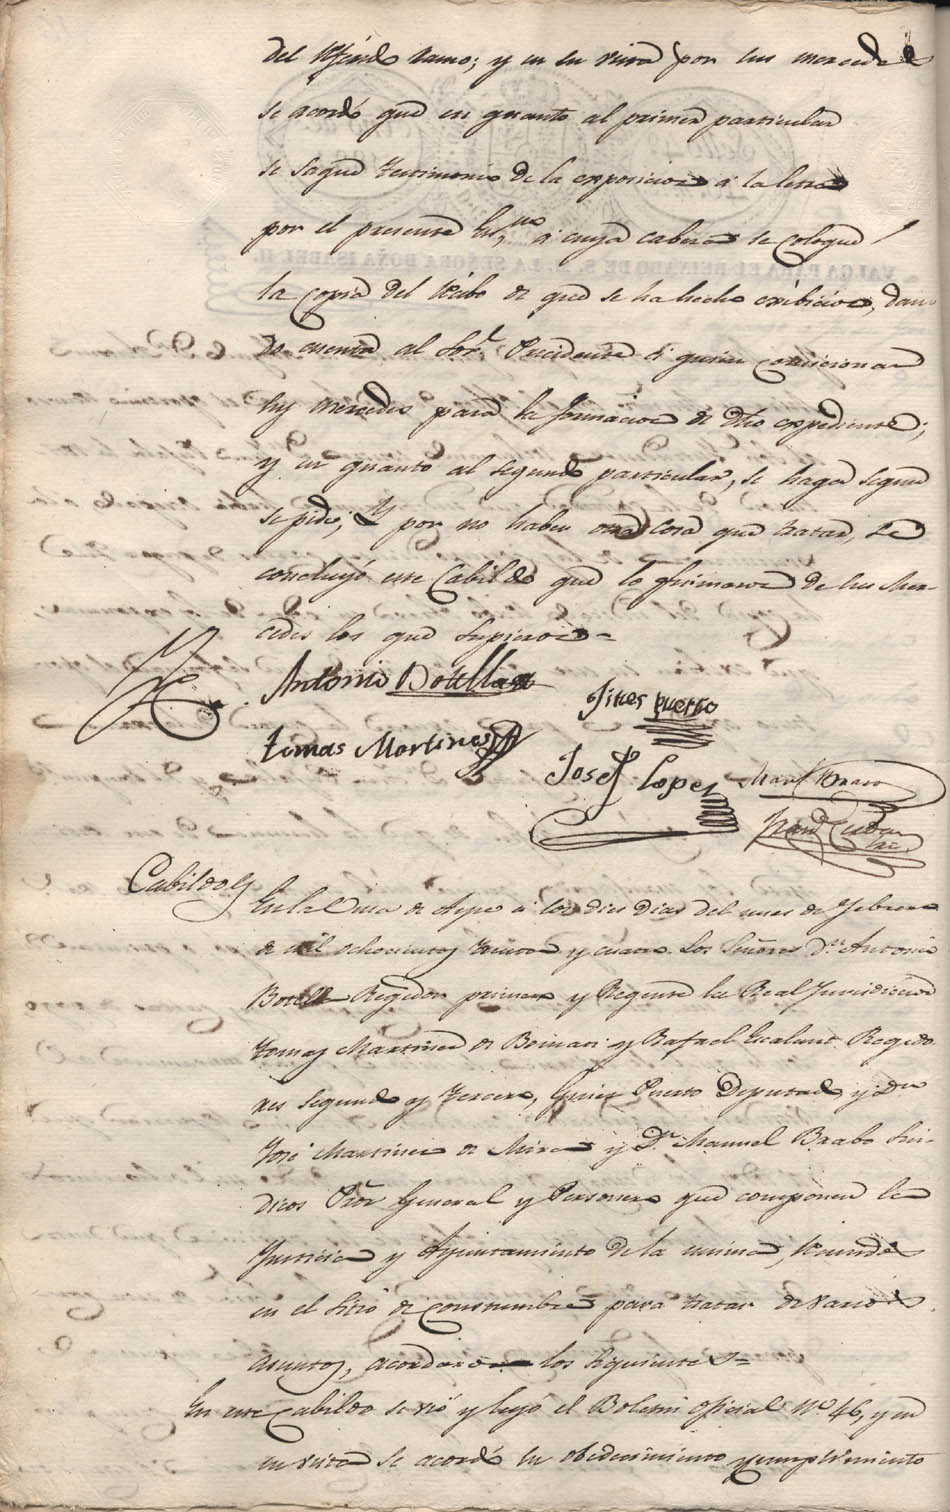 del referido ramo; y en su vista por sus mercedes
se acordó que en quanto al primer particular
se saque testimonio de la exposicion a la letra
por el presente Es.no a cuya cabeza se coloque
la copia del recibo de que se ha hecho exibicion, dan
do cuenta al Sor. Presidente si quiere comicionar
sus mercedes para la formacion de dho expediente;
y en quanto al segundo particular, se haga segun
se pide; Y por no haber otra cosa que tratar, se
concluyó este Cabildo que lo firmaron de sus Mer-
cedes los que supieron =
Antonio Botella
Jines puerto
Tomas Martinez
Josef Lopez
Man.l Bravo
Cabildo
En la Villa de Aspe a los dies dias del mes de Febrero
de mil ochocientos treinta y cuatro. Los Señores D.n Antonio
Botella Regidor primero y Regente la Real Jurisdiccion
Tomas Martinez de Bernavi y Rafael Escalant Regido
res segundo y tercero, Gines Puerto Diputado y D.n
José Martinez de Mira y D.n Manuel Brabo Sin-
dicos Pror General y Personero que componen la
Justicia y Ayuntamiento de la misma, reunidos
en el sitio de construmbre para tratar de varios
asuntos, acordaron los siguientes =
En este Cabildo se vió y leyó el Boletin oficial N.o 46, y en
su vista se acordó su obedecimiento y cumplimiento
VALGA PARA EL REINADO DE S. M. LA SEÑORA DOÑA ISABEL II.